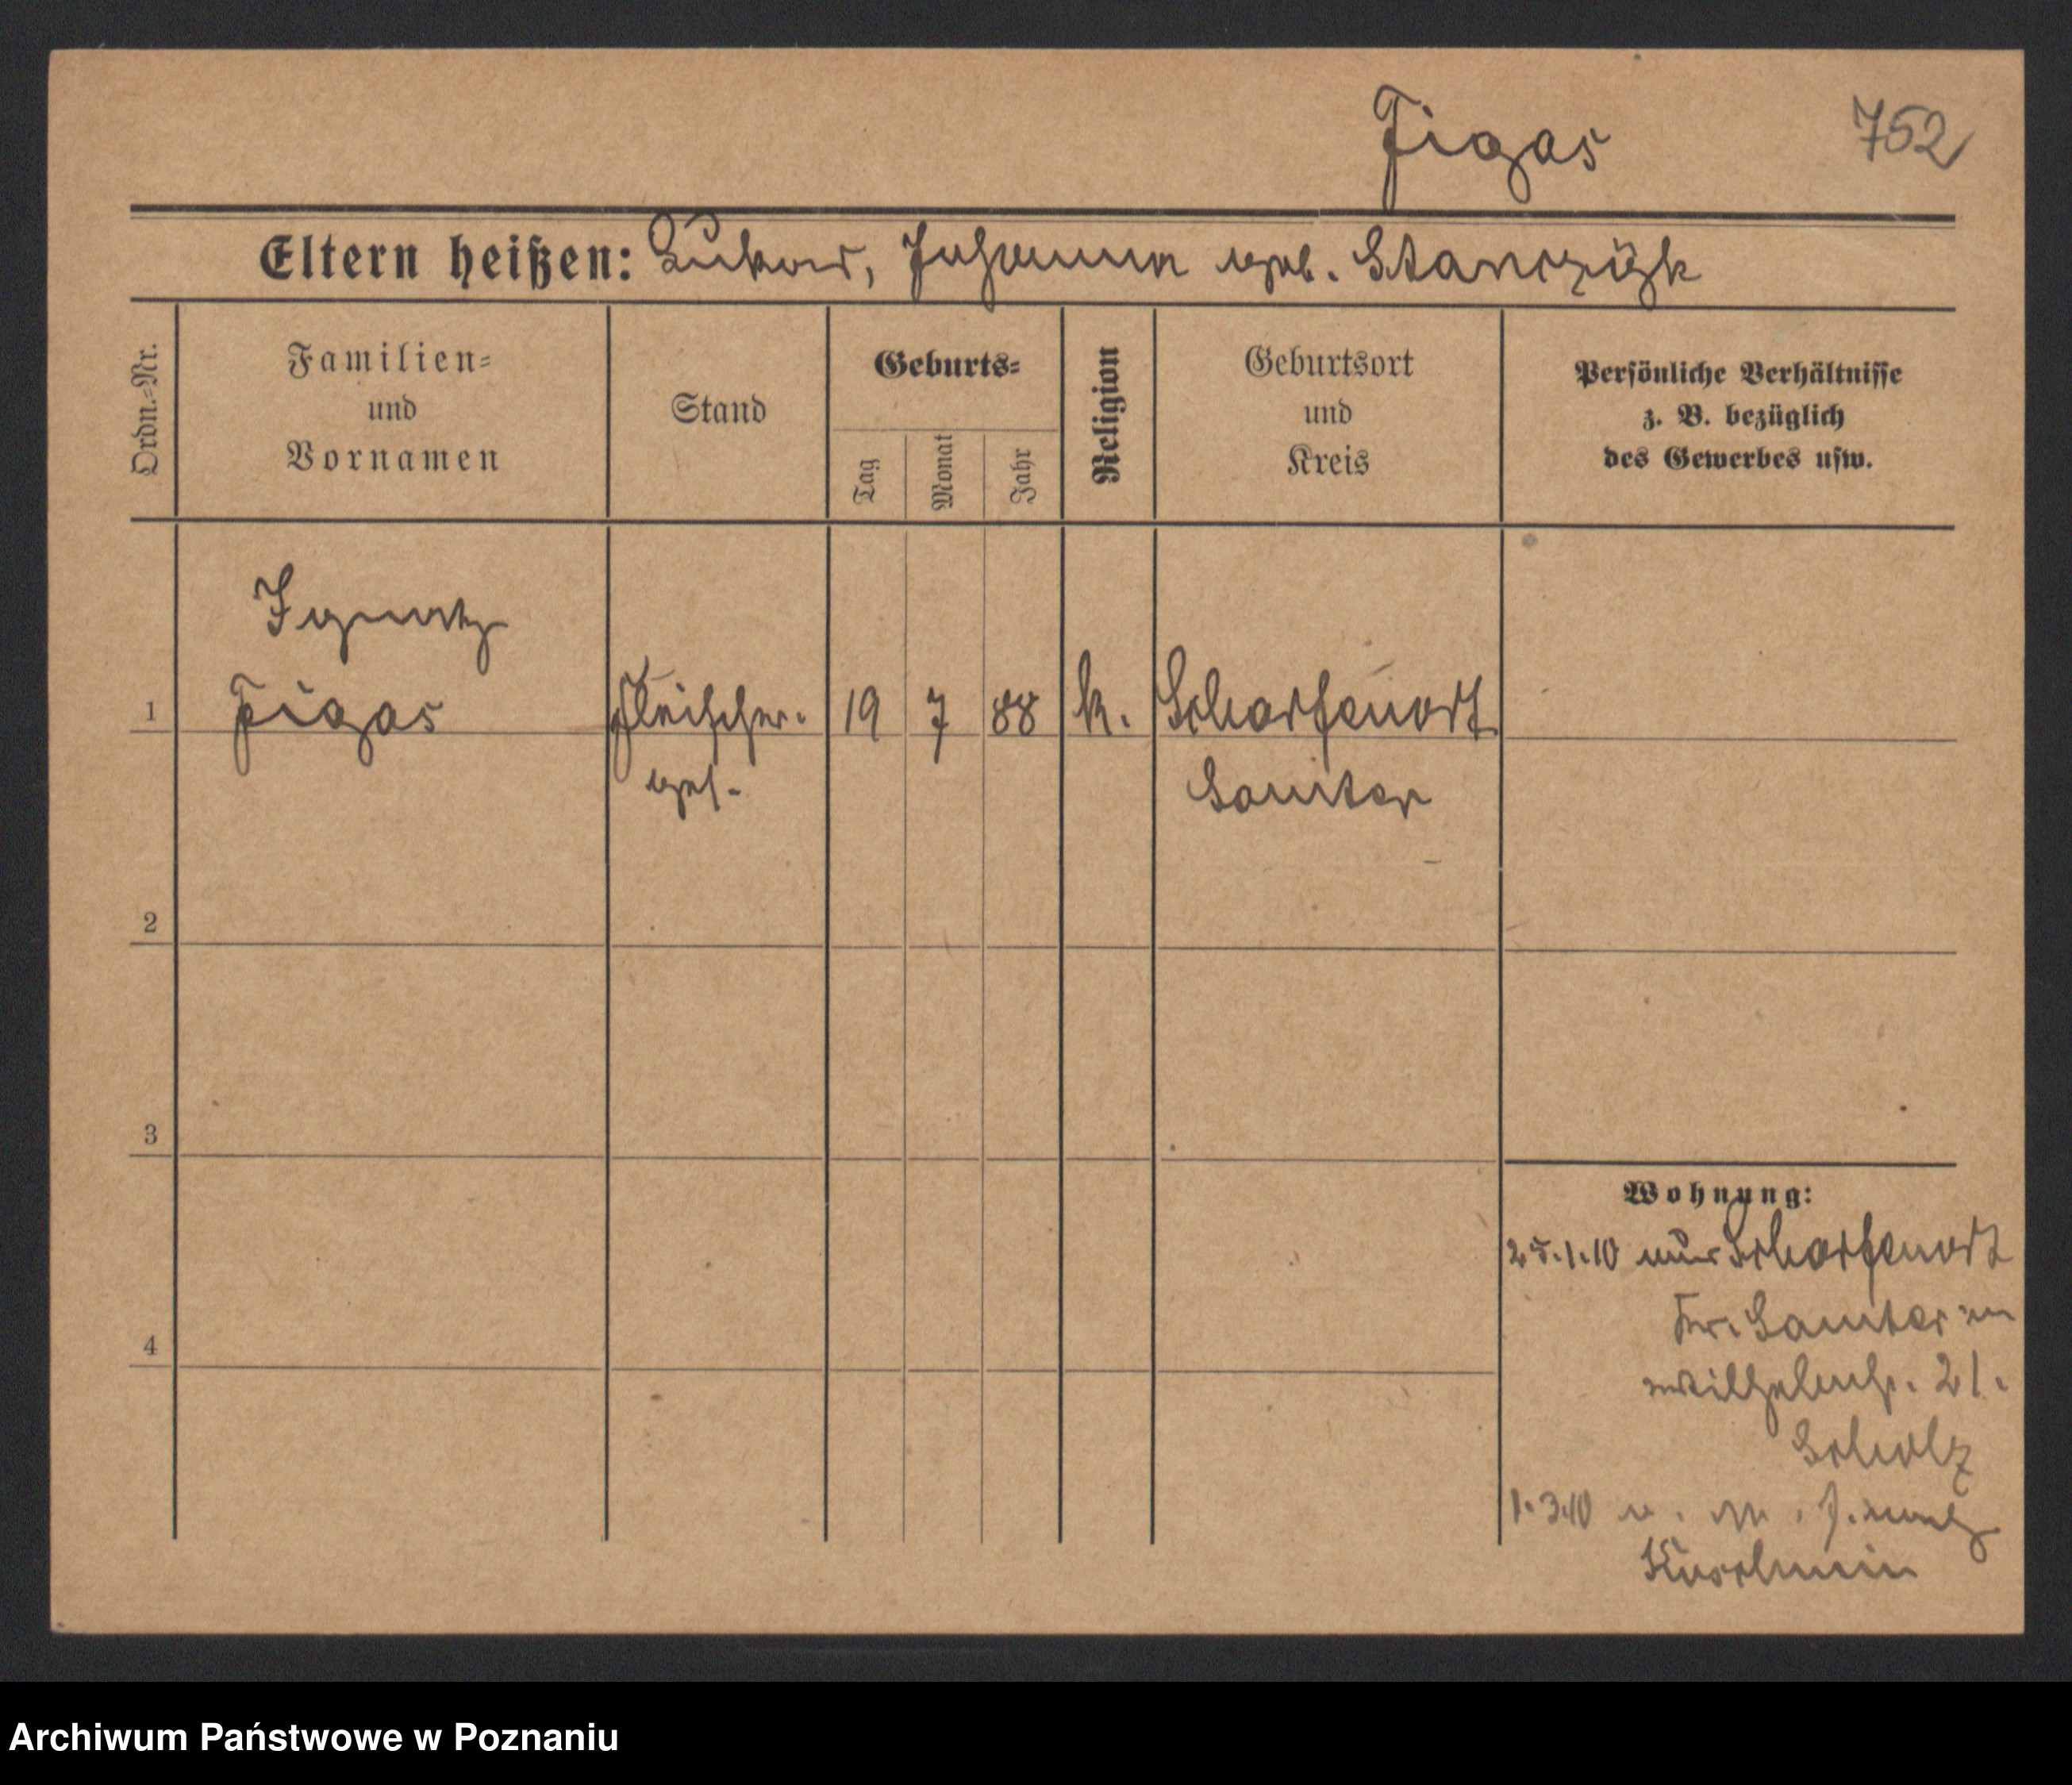 Figas 752
Eltern heißen: Lukas, Johanna geb. Stanczyk
Ordn.=Nr.
Familien=
und
Vornamen
Stand
Geburts=
Tag
Monat
Jahr
Religion
Geburtsort
und
Kreis
Persönliche Verhältnisse
z. B. bezüglich
des Gewerbes usw.
Ignatz
1 Figas Fleischer. 19 7 88 k. Scharfenort
ges. Samter
2
3
4
Wohnung:
25.1.10 Scharfenort
Kr. Samter
Wilhelmstr. 21.
Scholz
1.3.10 n.
Koschmin
Archiwum Państwowe w Poznaniu